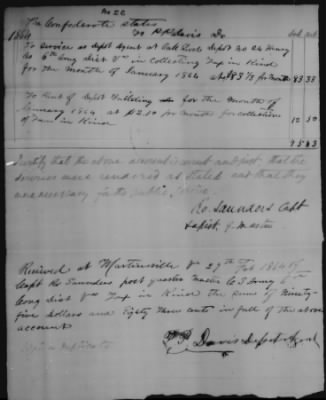 No 22
The Confederate States
1864 To P P Davis Dr
To Services as Depot Agent at Depot No 24 Henry
Co 6th Cong Dist Va in Collecting Tax in Kind
for the month of January 1864 at $83 1/3 per month 83.33
To Rent of Depot Building for the month of
January 1864 at $12.50 per month for collection
of Tax in Kind 12 50
95 83
I certify that the above account is correct and just, that the
services were rendered as stated and that they
were necessary for the public service
Ro Saunders Capt
Received at Martinsville Va 29th Feb 1864 of
Capt Ro Saunders post quarter master C S Army 6th
Cong Dist Va Tax in Kind the sum of Ninety-
five dollars and Eighty Three cents in full of the above
account
P P Davis Depot Agent